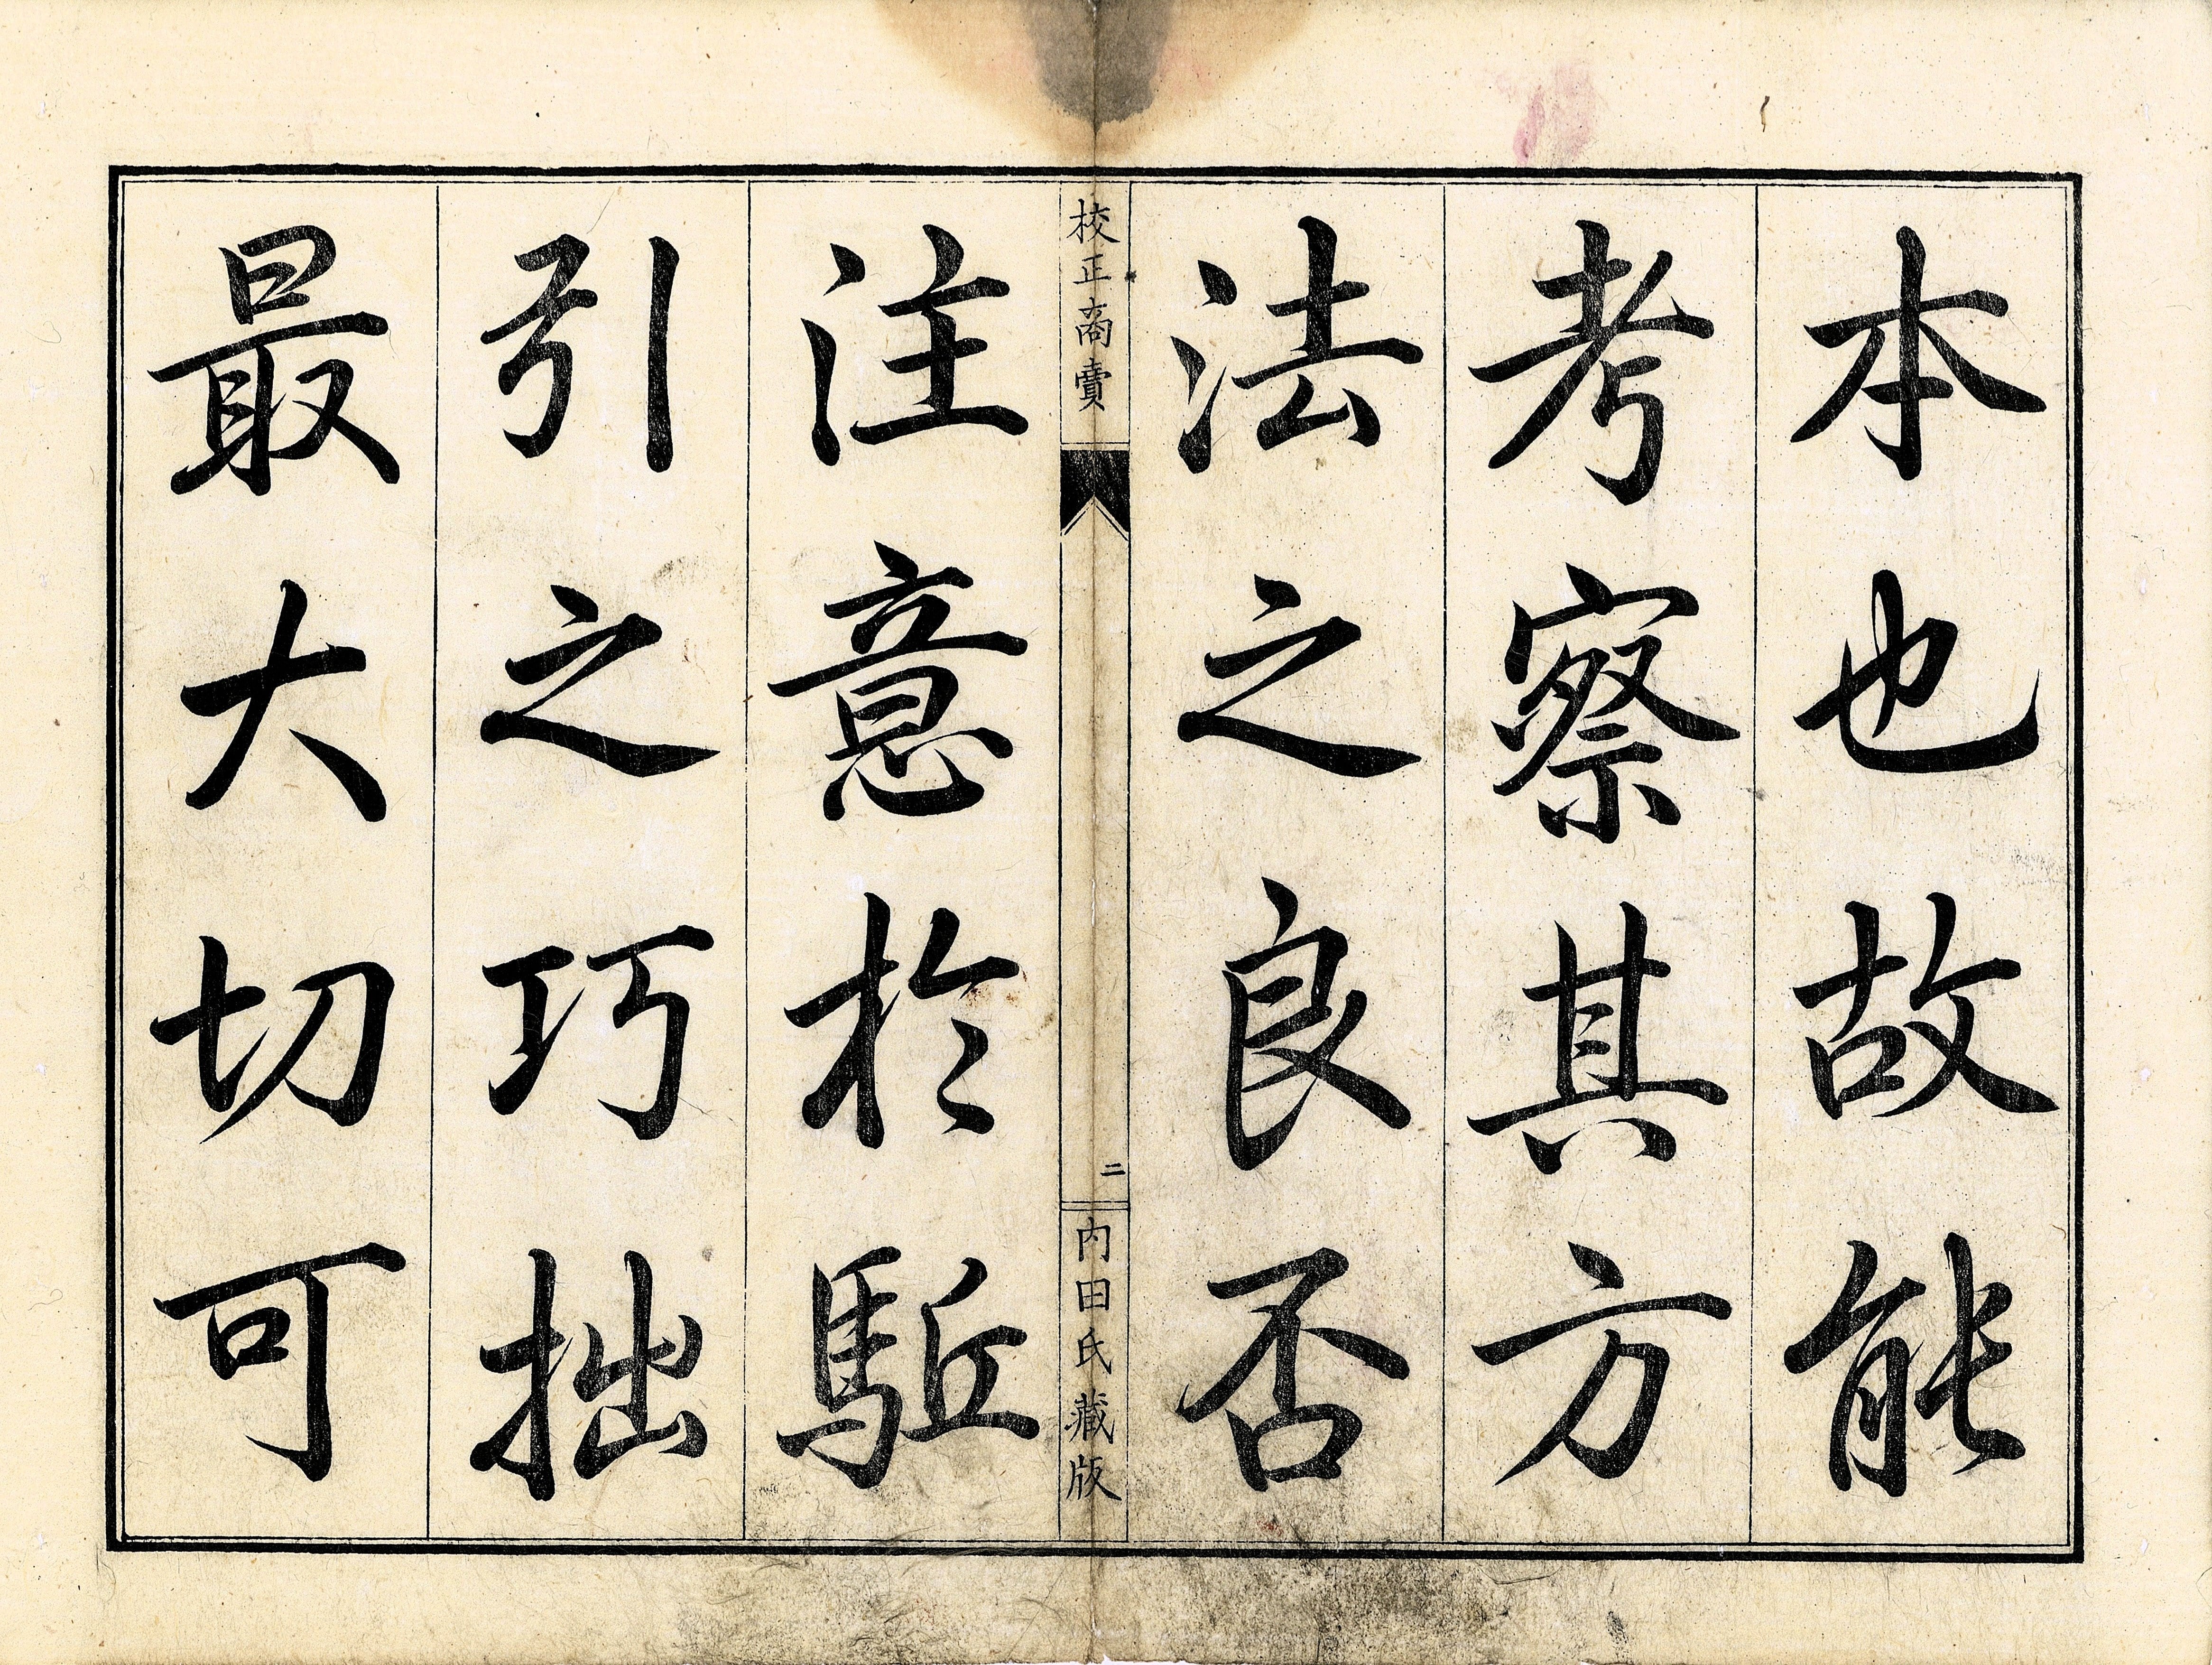 本也故能
考察其方
法之良否
校正商賣
二
内田氏藏版
注意於駈
引之巧拙
最大切可